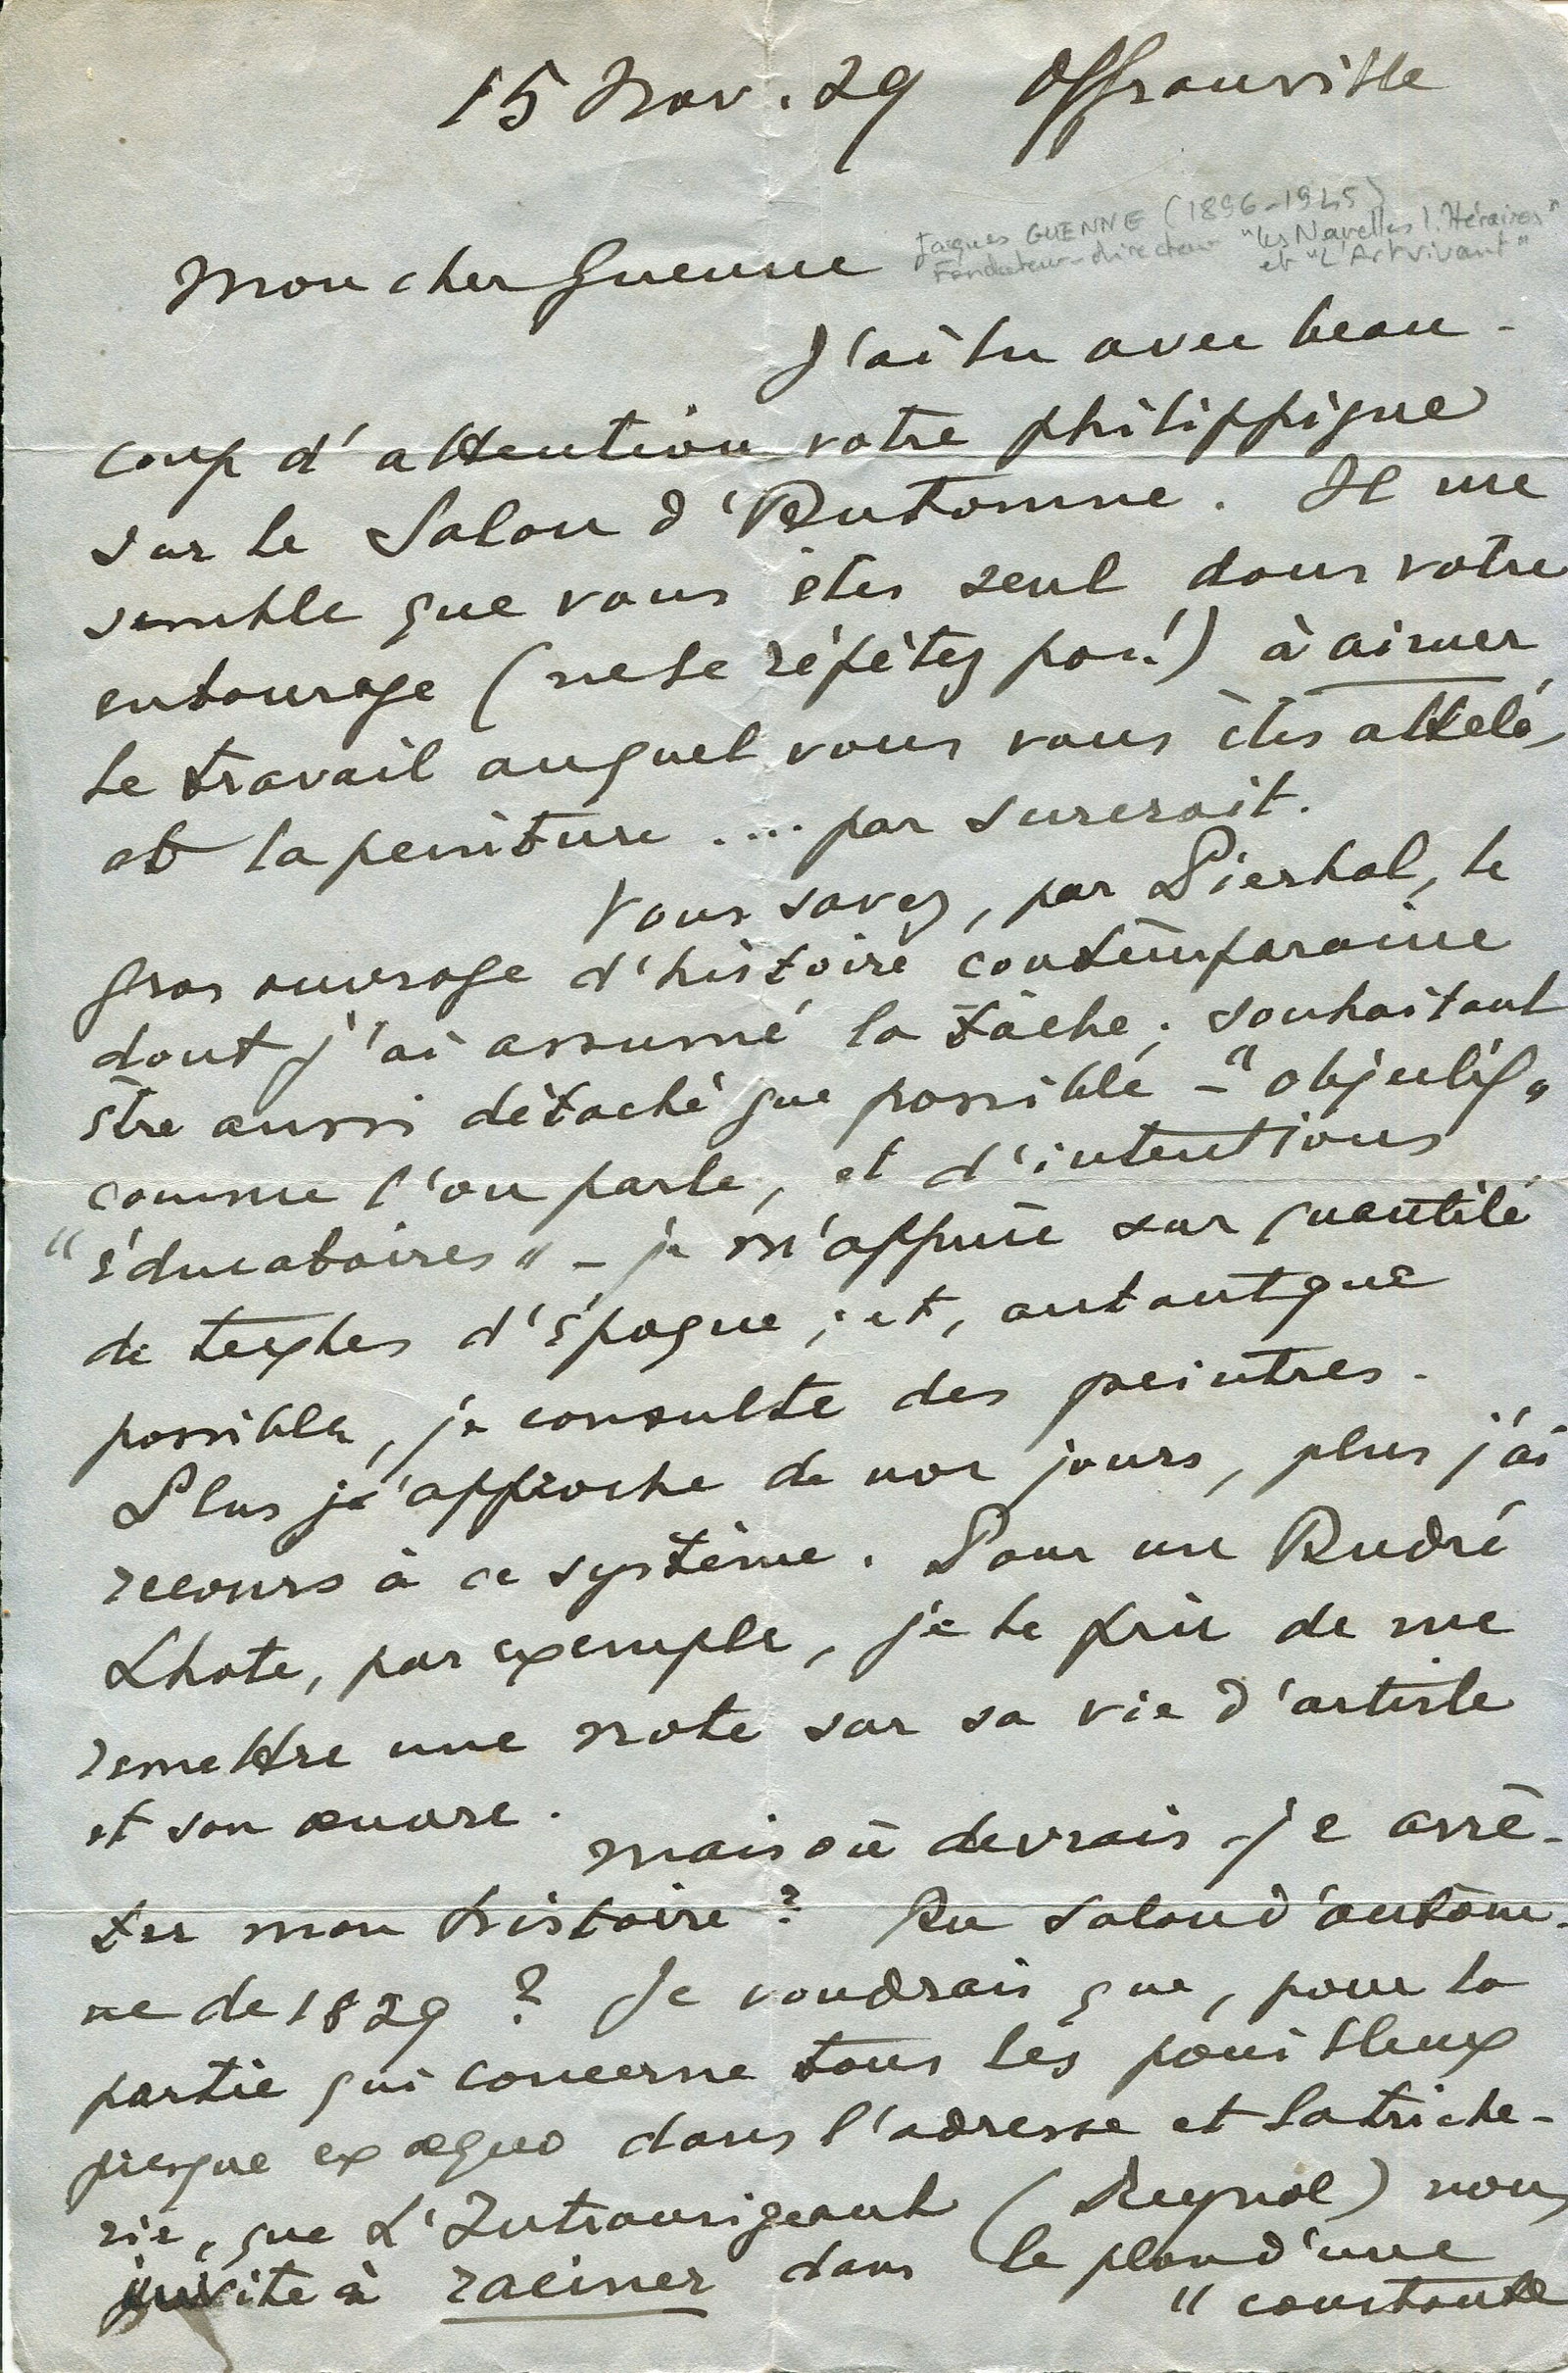 15 Nov. 29 Offranville
Jacques GUENNE (1896-1945)
Fondateur-directeur "Les Nouvelles littéraires"
et "L'Art vivant"
Mon cher Guenne
J'ai lu avec beau-
coup d'attention votre philippique
sur le Salon d'Automne. Il me
semble que vous êtes seul dans votre
entourage (ne le répétez pas!) à aimer
le travail auquel vous vous êtes attelé,
et la peinture .... par surcroit.
Vous savez, par Pierhal, le
gros ouvrage d'histoire contemporaine
dont j'ai assumé la tâche; souhaitant
être aussi détaché que possible - "objectif"
comme l'on parle, et d'intentions
"éducatoires" - je m'appuie sur quantité
de textes d'époque; et, autant que
possible, je consulte des peintres.
Plus j'approche de nos jours, plus j'ai
recours à ce système. Pour un André
Lhote, par exemple, je le prie de me
remettre une note sur sa vie d'artiste
et son œuvre.
Mais où devrais-je arrê-
ter mon histoire? Au Salon d'autom-
ne de 1829? Je voudrais que, pour la
partie qui concerne tous les pouilleux
presque ex æquo dans l'adresse et la triche-
rie, que L'Intransigeant (Raynal) nous
invite à raciner dans le plan d'une
"constante